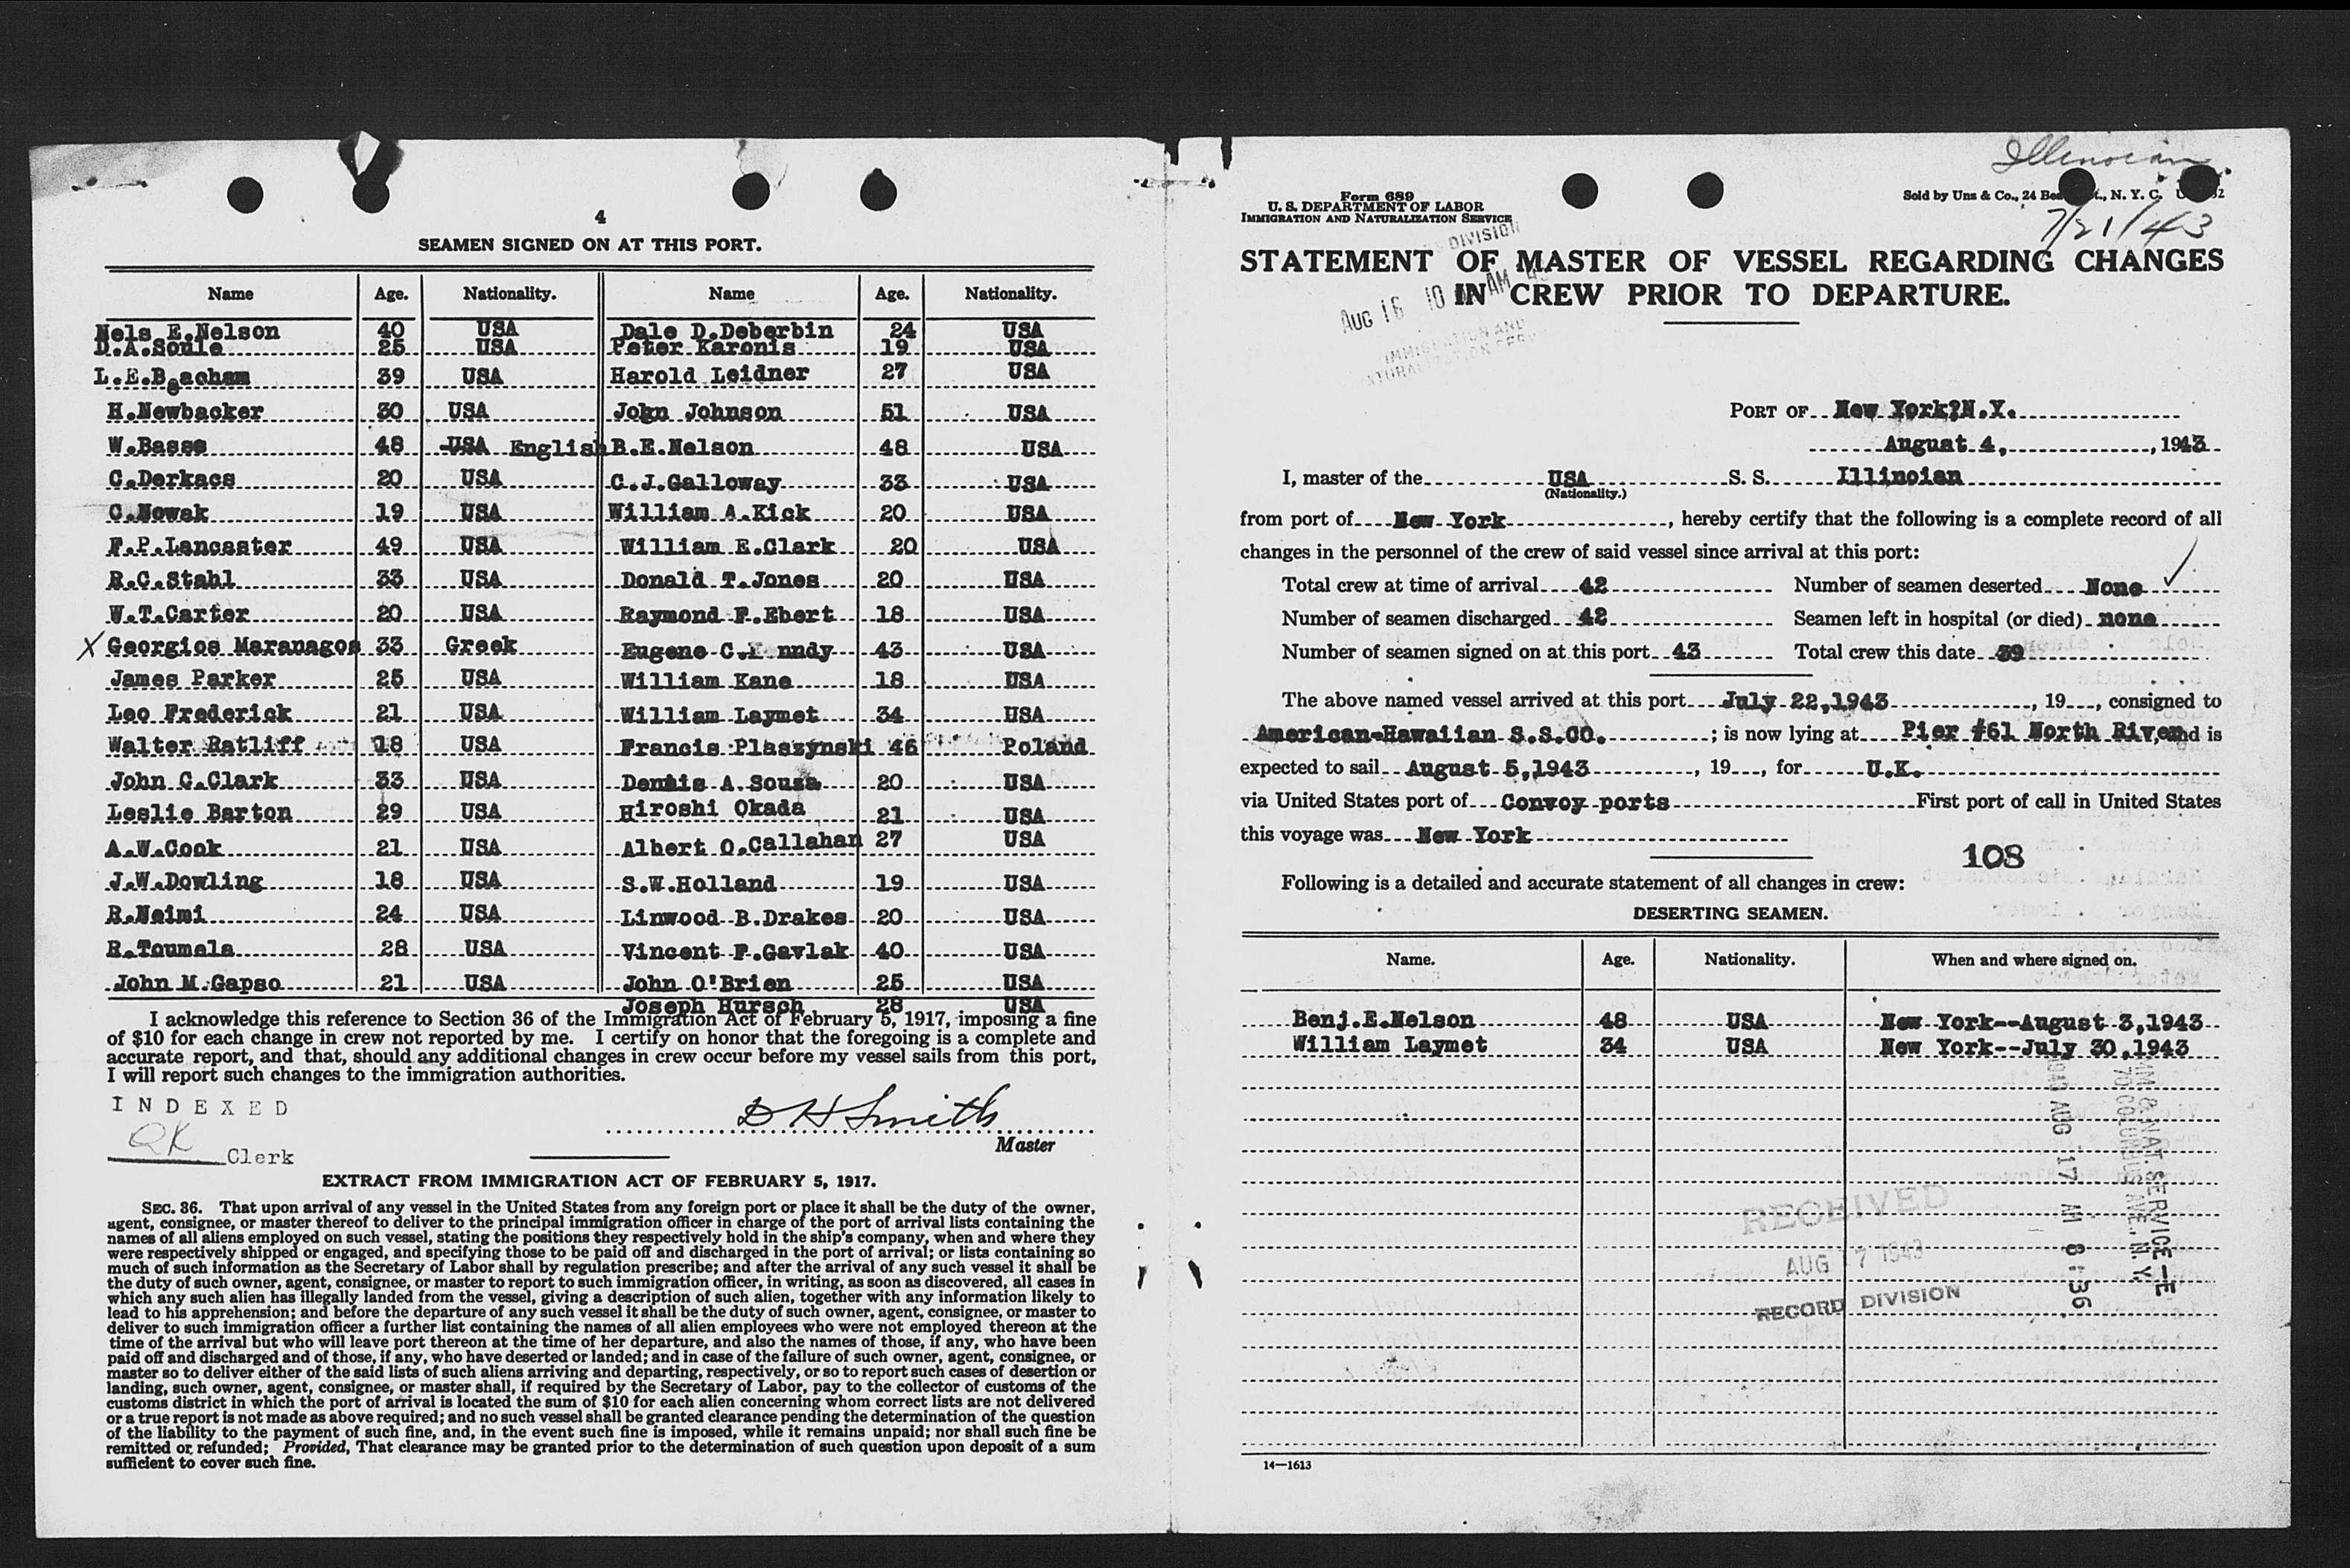 4
SEAMEN SIGNED ON AT THIS PORT.
Name Age. Nationality. Name Age. Nationality.
Nels E.Nelson 40 USA Dale D.Deberbin 24 USA
D.A.Soule 25 USA Peter Karonis 19 USA
L.E.Beacham 39 USA Harold Leidner 27 USA
H.Newbacker 30 USA John Johnson 51 USA
W.Basse 48 USA English B.E.Nelson 48 USA
C.Derkacs 20 USA C.J.Galloway 33 USA
C.Nowak 19 USA William A.Kick 20 USA
F.P.Lancaster 49 USA William E.Clark 20 USA
R.C.Stahl 33 USA Donald T.Jones 20 USA
W.T.Carter 20 USA Raymond F.Ebert 18 USA
X Georgios Maranagos 33 Greek Eugene C. nndy 43 USA
James Parker 25 USA William Kane 18 USA
Leo Frederick 21 USA William Laymet 34 USA
Walter Ratliff 18 USA Francis Plaszynski 46 Poland
John C.Clark 33 USA Dennis A.Souza 20 USA
Leslie Barton 29 USA Hiroshi Okada 21 USA
A.W.Cook 21 USA Albert O.Callahan 27 USA
J.W.Dowling 18 USA S.W.Holland 19 USA
R.Neimi 24 USA Linwood B.Drakes 20 USA
R.Toumela 28 USA Vincent P.Gavlak 40 USA
John M.Gapso 21 USA John O'Brien 25 USA
Joseph Hursch 28 USA
I acknowledge this reference to Section 36 of the Immigration Act of February 5, 1917, imposing a fine
of $10 for each change in crew not reported by me. I certify on honor that the foregoing is a complete and
accurate report, and that, should any additional changes in crew occur before my vessel sails from this port,
I will report such changes to the immigration authorities.
INDEXED
QK Clerk
D H Smith
Master
EXTRACT FROM IMMIGRATION ACT OF FEBRUARY 5, 1917.
SEC. 36. That upon arrival of any vessel in the United States from any foreign port or place it shall be the duty of the owner,
agent, consignee, or master thereof to deliver to the principal immigration officer in charge of the port of arrival lists containing the
names of all aliens employed on such vessel, stating the positions they respectively hold in the ship's company, when and where they
were respectively shipped or engaged, and specifying those to be paid off and discharged in the port of arrival; or lists containing so
much of such information as the Secretary of Labor shall by regulation prescribe; and after the arrival of any such vessel it shall be
the duty of such owner, agent, consignee, or master to report to such immigration officer, in writing, as soon as discovered, all cases in
which any such alien has illegally landed from the vessel, giving a description of such alien, together with any information likely to
lead to his apprehension; and before the departure of any such vessel it shall be the duty of such owner, agent, consignee, or master to
deliver to such immigration officer a further list containing the names of all alien employees who were not employed thereon at the
time of the arrival but who will leave port thereon at the time of her departure, and also the names of those, if any, who have been
paid off and discharged and of those, if any, who have deserted or landed; and in case of the failure of such owner, agent, consignee, or
master so to deliver either of the said lists of such aliens arriving and departing, respectively, or so to report such cases of desertion or
landing, such owner, agent, consignee, or master shall, if required by the Secretary of Labor, pay to the collector of customs of the
customs district in which the port of arrival is located the sum of $10 for each alien concerning whom correct lists are not delivered
or a true report is not made as above required; and no such vessel shall be granted clearance pending the determination of the question
of the liability to the payment of such fine, and, in the event such fine is imposed, while it remains unpaid; nor shall such fine be
remitted or refunded; Provided, That clearance may be granted prior to the determination of such question upon deposit of a sum
sufficient to cover such fine.
Illinoian
Form 689
U. S. DEPARTMENT OF LABOR
IMMIGRATION AND NATURALIZATION SERVICE
Sold by Unz & Co., 24 , N. Y. C.
7/21/43
DIVISION
AUG 16 10 AM
STATEMENT OF MASTER OF VESSEL REGARDING CHANGES
IN CREW PRIOR TO DEPARTURE.
PORT OF New York?N.Y.
August 4, , 1943
I, master of the USA S. S. Illinoian
(Nationality.)
from port of New York , hereby certify that the following is a complete record of all
changes in the personnel of the crew of said vessel since arrival at this port:
Total crew at time of arrival 42 Number of seamen deserted None
Number of seamen discharged 42 Seamen left in hospital (or died) none
Number of seamen signed on at this port 43 Total crew this date 39
The above named vessel arrived at this port July 22,1943 , 19 , consigned to
American-Hawaiian S.S.CO. ; is now lying at Pier #61 North River, and is
expected to sail August 5,1943 , 19 , for U.K.
via United States port of Convoy ports First port of call in United States
this voyage was New York
108
Following is a detailed and accurate statement of all changes in crew:
DESERTING SEAMEN.
Name. Age. Nationality. When and where signed on.
Benj.E.Nelson 48 USA New York--August 3,1943
William Laymet 34 USA New York--July 30,1943
IMM & NAT. SERVICE-E
70 COLUMBUS AVE., N.Y.
1943 AUG 17 AM 8:36
RECEIVED
AUG 17 1943
RECORD DIVISION
14—1613